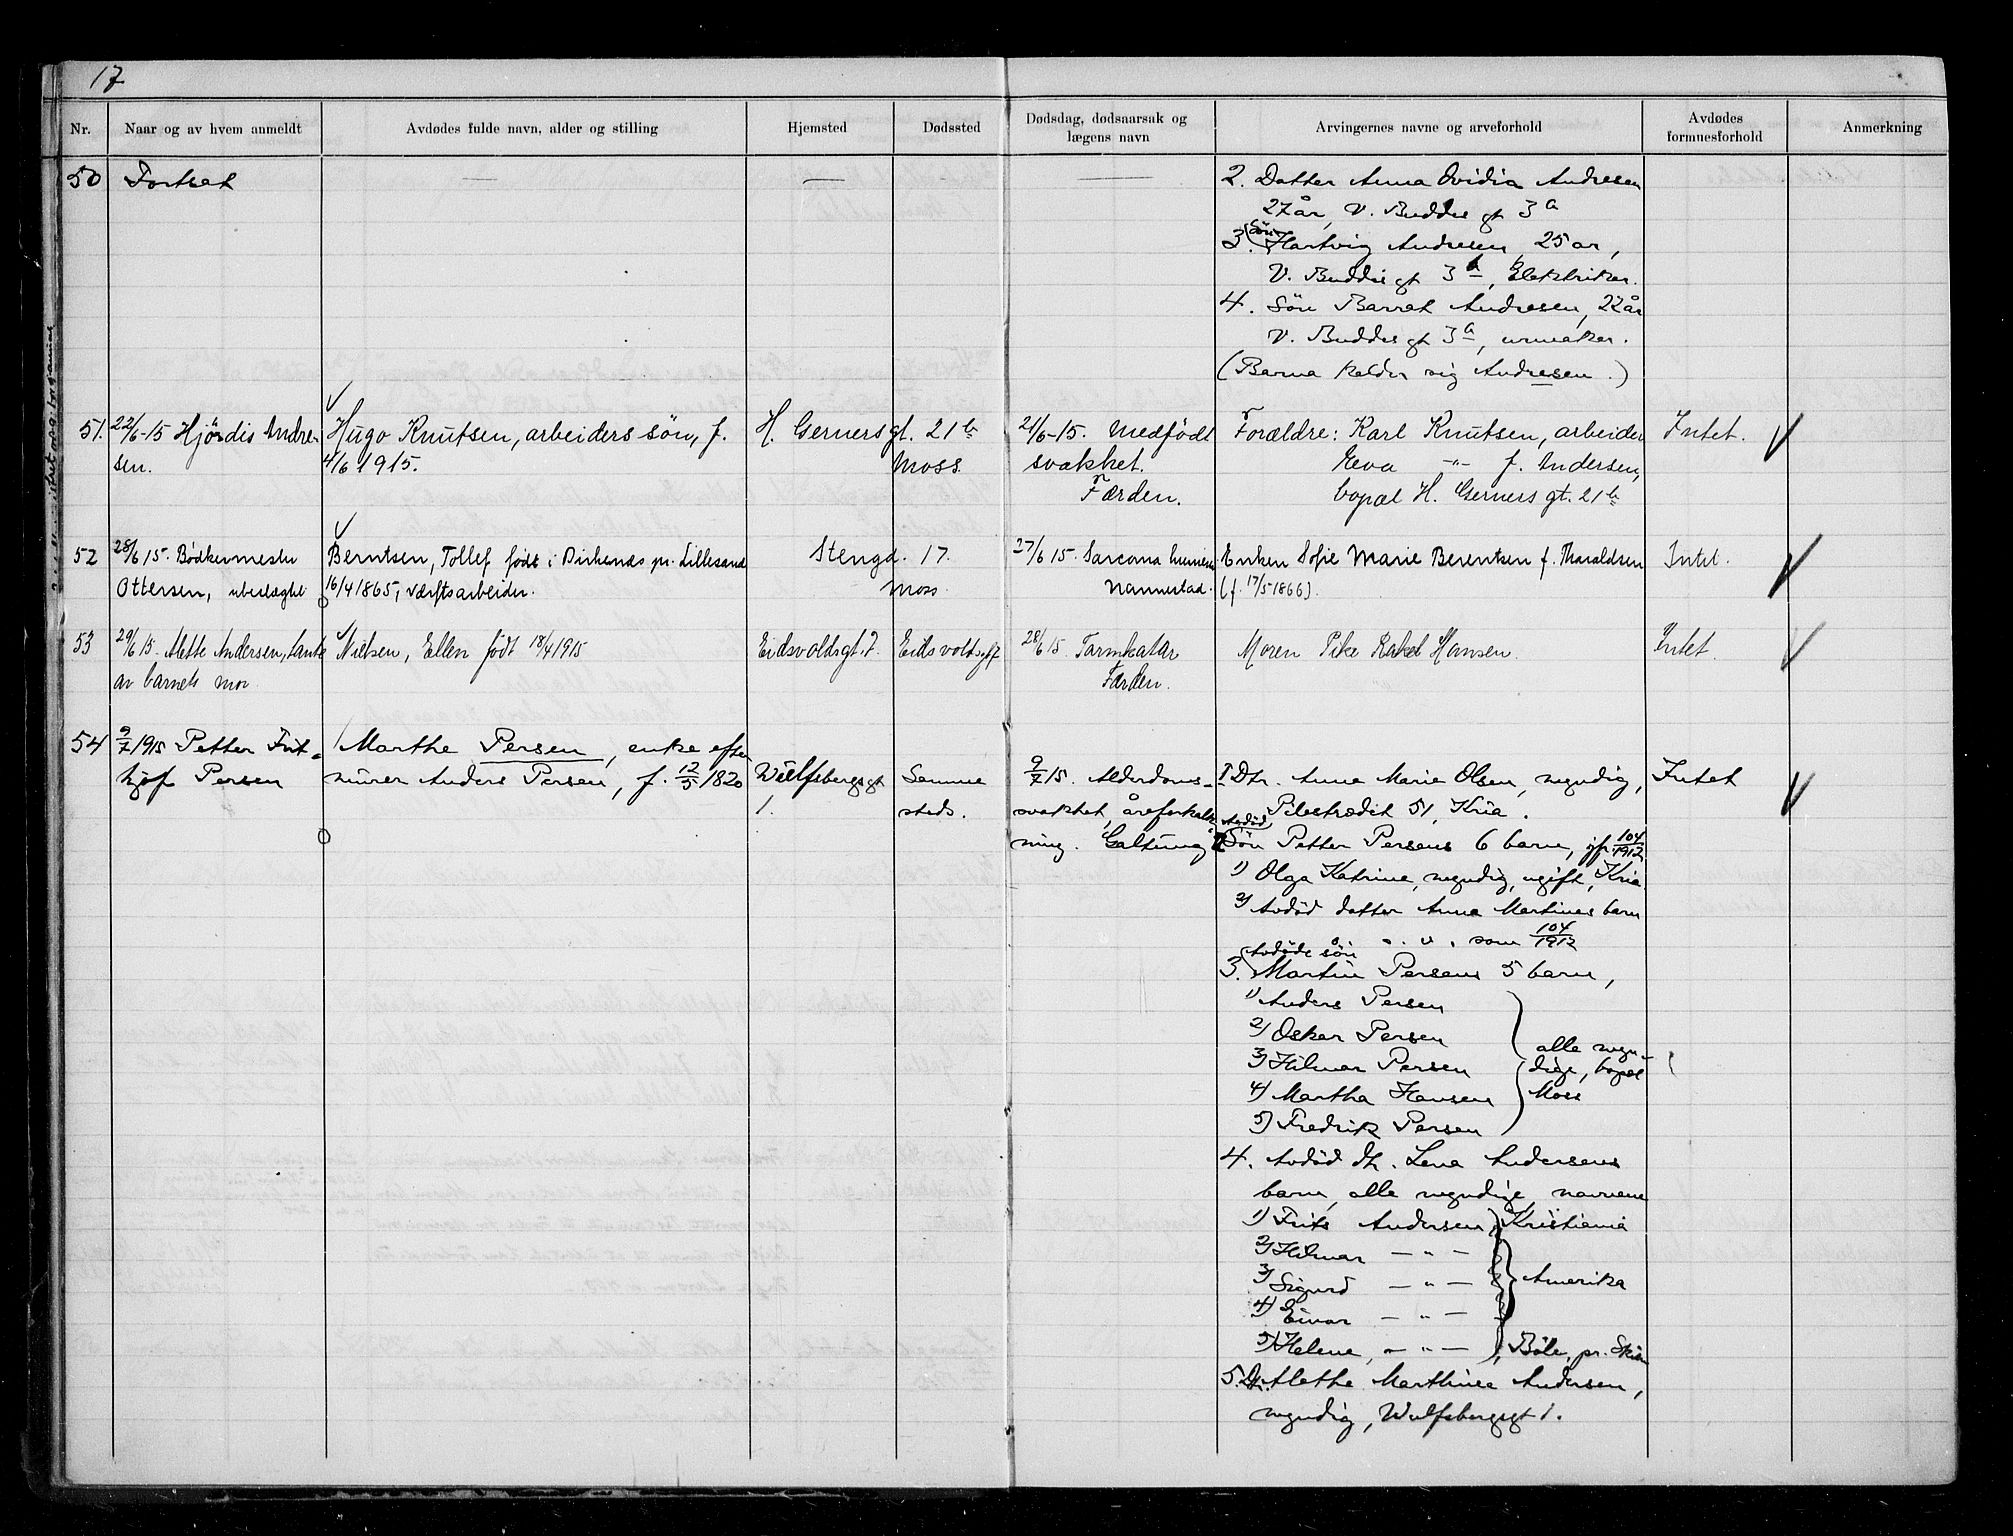 17
Nr.
Naar og av hvem anmeldt
Avdødes fulde navn, alder og stilling
Hjemsted
Dødssted
Dødsdag, dødsaarsak og
lægens navn
Arvingernes navne og arveforhold
Avdødes
formuesforhold
Anmerkning
50 Fortsat — — —
2. Datter Anna Ovidia Andresen
27 år, V. Buddes gt 3a
3. Søn Hartvig Andresen 25 år,
V. Buddes gt 3a, Elektriker.
4. Søn Barret Andresen, 22 år
V. Buddes gt 3a, urmaker.
(Barna kalder sig Andresen.)
51. 22/6-15 Hjördis Andre-
sen.
Hugo Knutsen, arbeiders sön, f.
4/6 1915.
H. Gerners gt. 21b
Moss.
21/6-15. Medfödt
svakhet.
Færden.
Forældre: Karl Knutsen, arbeider
Eeva -"- f. Andersen,
bopæl H. Gerners gt. 21b
Intet.
52 28/6 15. Bødkermester
Ottersen, ubeslægtet
Berntsen, Tollef født i Birkenes pr. Lillesand
16/4 1865, værftsarbeider.
Stengd. 17.
Moss
27/6 15. Sarcoma humeri
Nannestad.
Enken Sofie Marie Berentsen f. Tharaldsen
(f. 17/5-1866).
Intet.
53 29/6 15. Alette Andersen, tante
av barnets mor
Nielsen, Ellen født 18/4 1915
Eidsvoldsgt. 7.
Eidsvoldsgt 7
28/6 15. Tarmkatar
Færden.
Moren Pike Rakel Hansen.
Intet.
54 9/7 1915 Petter Frit-
hjof Persen
Marthe Persen, enke efter
murer Anders Persen, f. 12/5 1820
Wülfsbergsgt
1.
Samme
steds.
9/7 15. Alderdoms-
svakhet, åreforkalk-
ning. Galtung
1 Dtr. Anna Marie Olsen, myndig,
Pilestrædet 51, Kria.
2 Avdød Søn Petter Persens 6 barn, jfr. 104/1912
1) Olga Katrine, myndig, ugift, Kria
2) Avdød datter Anna Martines barn
o. s. v. som 104/1912
3. Avdøde søn Martin Persens 5 barn,
1) Anders Persen
2) Oskar Persen
3) Hilmar Persen
4) Martha Hansen
5) Fredrik Persen
alle myn-
dige, bopæl
Moss
4. Avdød dtr. Lena Andersens
barn, alle myndige, navnene
1) Frits Andersen, Kristiania
2) Hilmar —"—
3) Sigurd —"— Amerika
4) Einar —"—
5) Helene, —"—, Böle, pr. Skien
5. Dtr. Alethe Marthinea Andersen,
myndig, Wulfsbergsgt 1.
Intet